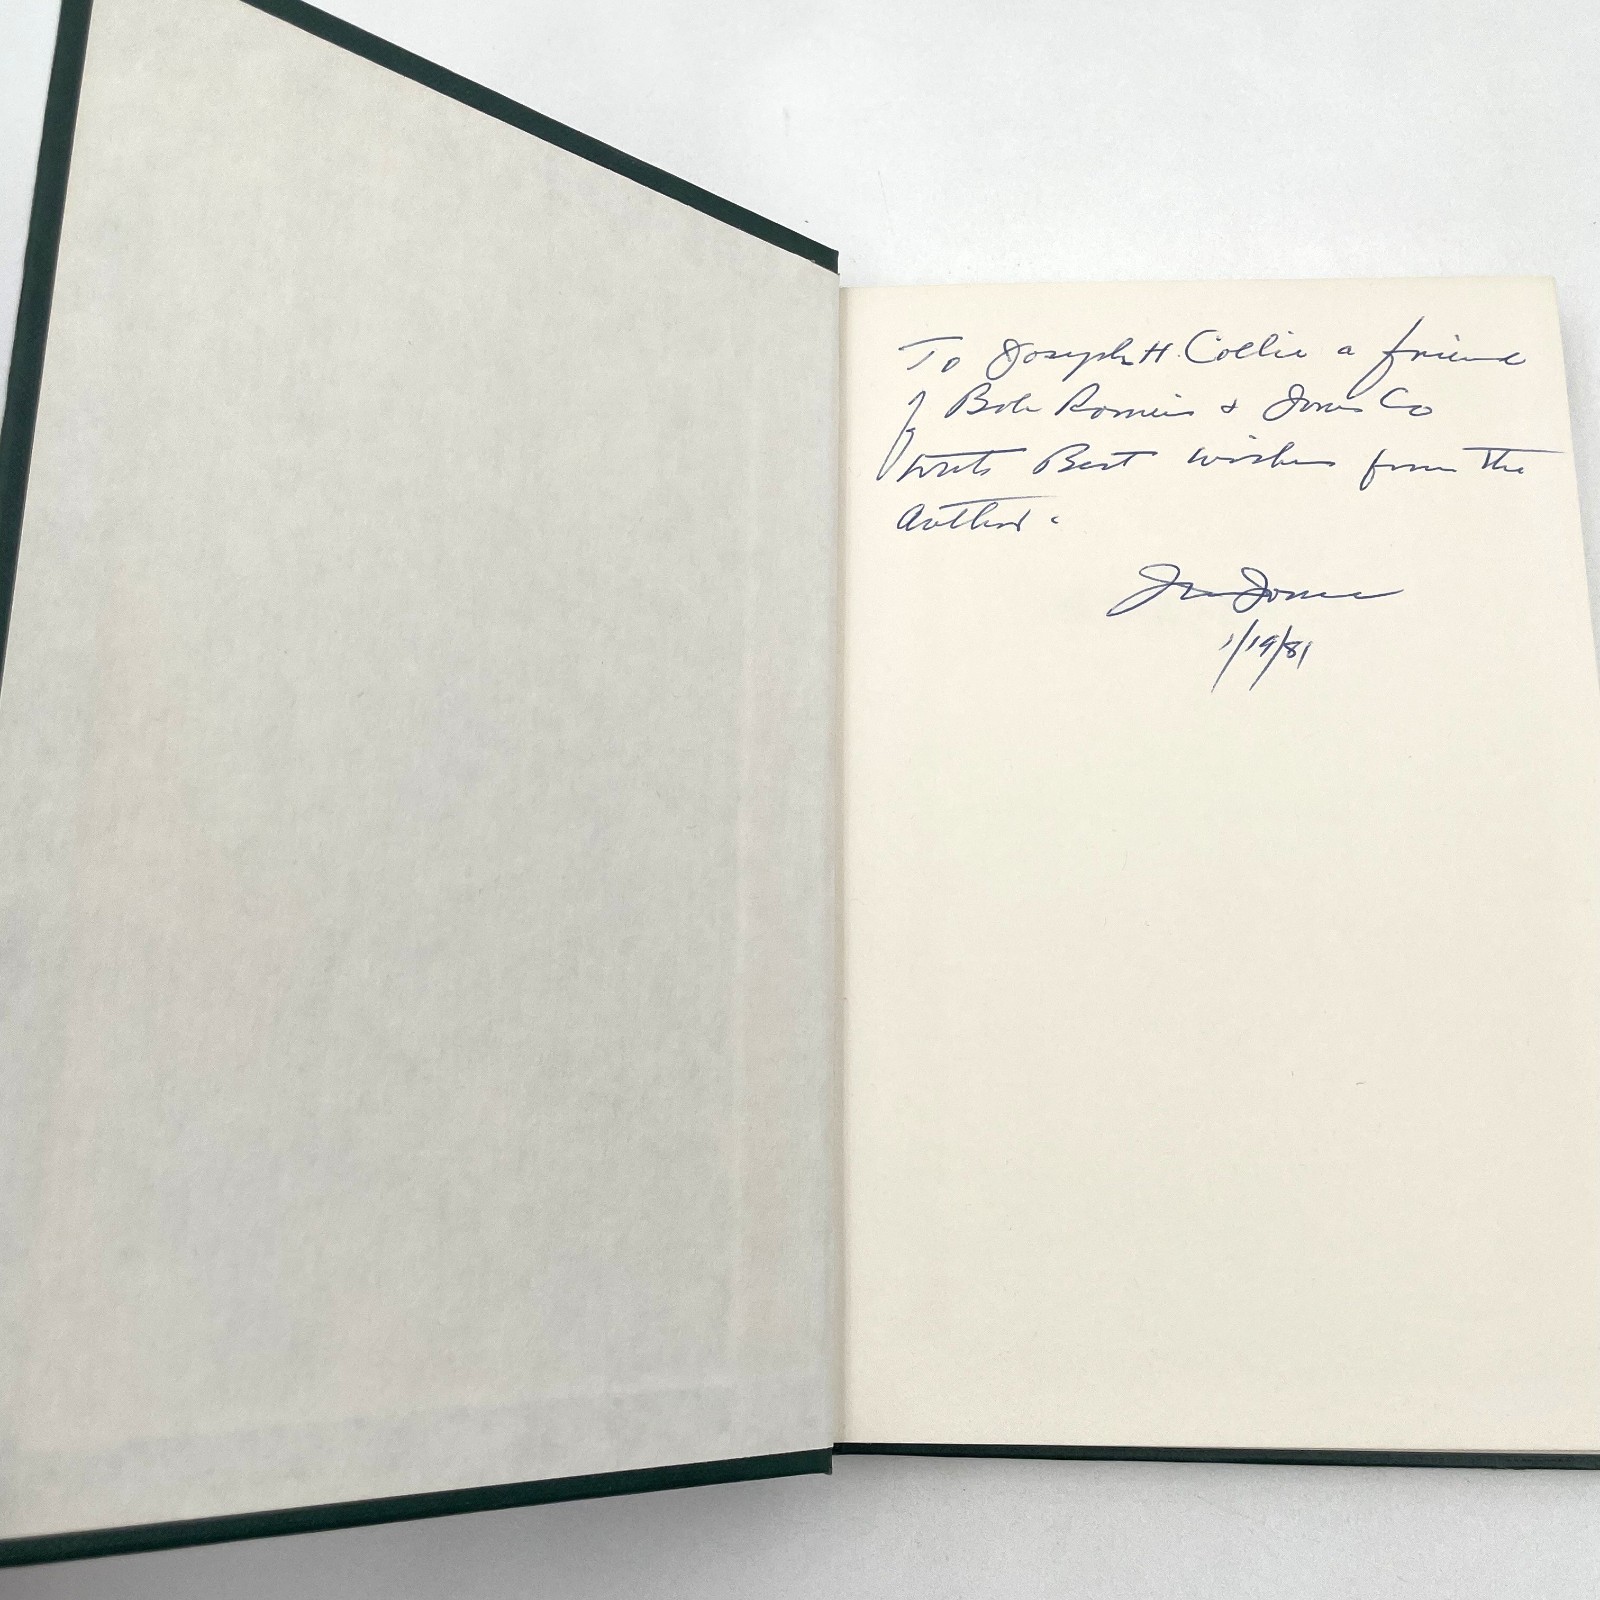 To Joseph H. Collie a friend
of Bob & Jones Co
with Best wishes from The
Author.
Jones
1/19/81